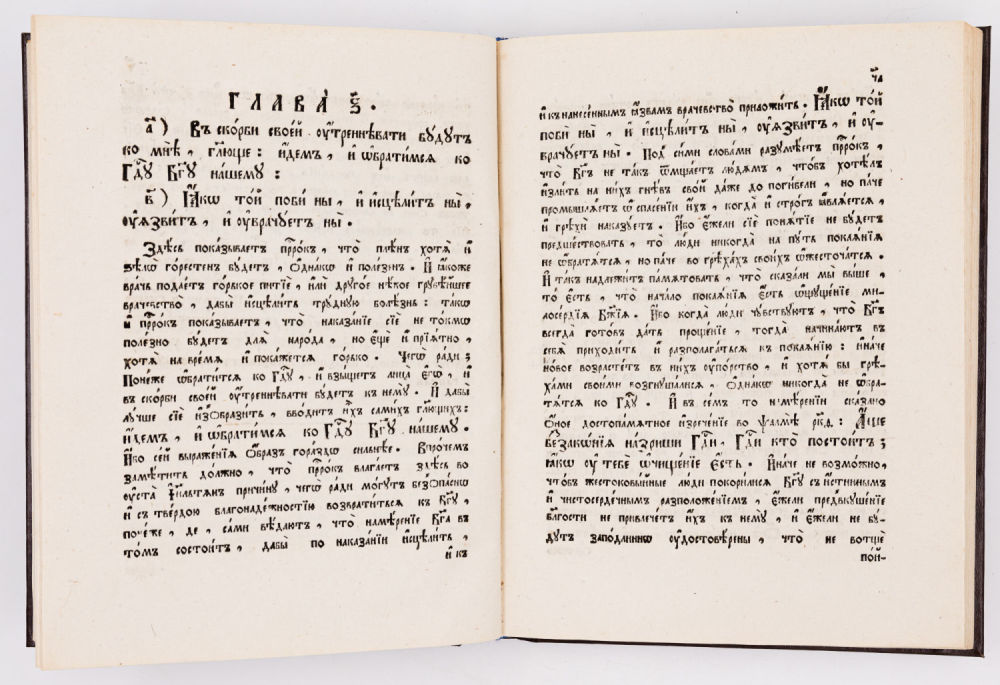 ГЛАВА̀ ѕ҃.
а҃) Въ ско́рби свое́й ѹ҆́треннѣвати бу́дутъ
ко мнѣ̀, гл҃юще: и҆́демъ, и҆ ѡ҆брати́мся ко
Гдⷭ҇у Бг҃у нашему:
в҃) Ꙗ҆́кѡ то́й поби́ ны̀, и҆ и҆сцѣли́тъ ны̀,
ѹ҆ѧ́звитъ, и҆ ѹ҆врачу́етъ ны̀.
Здѣ́сь пока́зываетъ прⷪ҇ро́къ, что̀ плѣ́нъ хотѧ̀ и҆
ѕѣлѡ̀ го́рестенъ бу́детъ, ѻ҆дна́кѡ и҆ поле́зенъ. И҆ та́коже
вра́чь подае́тъ го́рькое питїѐ, и҆лѝ друго́е нѣ́кое грубѣ́йшее
врачевство̀, дабы̀ и҆сцѣли́ть тру́дную болѣ́знь: та́кѡ
и҆ прⷪ҇ро́къ пока́зываетъ, что̀ наказа́нїе сїѐ не то́кмѡ
поле́зно бу́детъ для наро́да, но є҆щѐ и҆ прїѧ́тно,
хотѧ̀ на вре́мя и҆ пока́жется го́рько. Чегѡ̀ ра́ди;
Поне́же ѡ҆брати́тся ко Гдⷭ҇у, и҆ взы́щетъ лица̀ є҆гѡ̀, и҆
въ ско́рби свое́й ѹ҆́треннѣвати бу́детъ къ нему̀. И҆ дабы̀
лу́чше сїѐ и҆з̾ѻбрази́ть, вво́дитъ и҆́хъ сами́хъ гл҃ющихъ:
и҆́демъ, и҆ ѡ҆брати́мся ко Гдⷭ҇у Бг҃у нашему.
И҆́бо се́й выраже́нїя ѻ҆́бразъ гора́здѡ сильнѣ́е. Впро́чемъ
замѣ́тить должно̀, что̀ прⷪ҇ро́къ влага́етъ здѣ́сь во
ѹ҆ста̀ І҆и҃льтянъ причи́ну, чегѡ̀ ра́ди мо́гутъ без̾ѻпа́снѡ
и҆ съ тве́рдою благонаде́жностїю возврати́ться къ Бг҃у,
поне́же, де, са́ми вѣ́даютъ, что̀ намѣ́ренїе Бг҃а въ
то́мъ состои́тъ, дабы̀ по наказа́нїи и҆сцѣли́ть,
и҆ къ
ч҃а
и҆ къ нанесе́ннымъ ꙗ҆́звамъ врачевство̀ приложи́ть. Ꙗ҆́кѡ то́й
поби́ ны̀, и҆ и҆сцѣли́тъ ны̀, ѹ҆ѧ́звитъ, и҆ ѹ҆-
врачу́етъ ны̀. Под̾ си́ми слова́ми разумѣ́етъ прⷪ҇ро́къ,
что̀ Бг҃ъ не та́къ ѿмща́етъ лю́дямъ, что́бъ хотѣ́лъ
и҆злі́ть на ни́хъ гнѣ́въ сво́й да́же до поги́бели, но па́че
промышля́етъ ѡ҆ спасе́нїи и҆́хъ, когда̀ и҆ стро́гъ ꙗ҆вля́ется,
и҆ грѣхѝ наказу́етъ. И҆́бо є҆́жели сїѐ поня́тїе не бу́детъ
предше́ствовать, то̀ лю́ди никогда̀ на пу́ть покая́нїя
не ѡ҆братя́тся, но па́че во грѣха́хъ свои́хъ ѡ҆жесточа́тся.
И҆ та́къ надлежи́тъ па́мятовать, что̀ сказа́ли мы̀ вы́ше,
то̀ є҆́сть, что̀ нача́ло покая́нїя є҆́сть ѡ҆щуще́нїе ми-
лосе́рдїя Бж҃їя. И҆́бо когда̀ лю́ди чу́вствуютъ, что̀ Бг҃ъ
всегда̀ гото́въ да́ть проще́нїе, тогда̀ начина́ютъ въ
себя̀ приходи́ть и҆ располага́ться къ покая́нїю: и҆на́че
но́вое возрасте́тъ въ ни́хъ ѹ҆по́рство, и҆ хотя̀ бы грѣ-
ха́ми свои́ми возгнуша́лися, ѻ҆дна́кѡ никогда̀ не ѡ҆бра-
тя́тся ко Гдⷭ҇у. И҆ въ се́мъ то намѣ́ренїи ска́зано
ѻ҆́ное достопа́мятное и҆зрече́нїе во ѱалмѣ̀ рк҃д: А҆́ще
беззакѡ́нїя на́зриши Гдⷭ҇и, Гдⷭ҇и кто̀ постои́тъ;
ꙗ҆́кѡ ѹ҆ тебѐ ѡ҆чище́нїе є҆́сть. И҆на́че не возмо́жно,
что́бъ жестоковы́йные лю́ди покори́лися Бг҃у съ и҆́стиннымъ
и҆ чистосерде́чнымъ расположе́нїемъ, є҆́жели предвкуше́нїе
бл҃гости не привлече́тъ и҆́хъ къ нему̀, и҆ є҆́жели не бу́-
дутъ запо́длиннѡ ѹ҆достовѣ́рены, что̀ не вотщѐ
по́й-